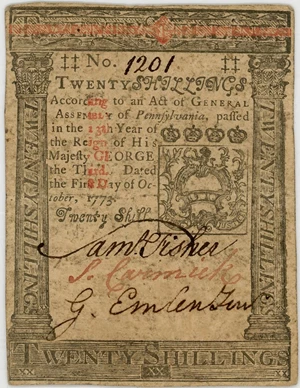 ‡‡ No. 1201 ‡‡
TWENTY SHILLINGS
According to an Act of GENERAL
ASSEMBLY of Pennsylvania, passed
in the 13th Year of
the Reign of His
Majesty GEORGE
the Third. Dated
the First Day of Oc-
tober, 1773.
Twenty Shill
TWENTY SHILLINGS
TWENTY SHILLINGS
Saml Fisher
G. Emlen Junr
XX XX
TWENTY SHILLINGS